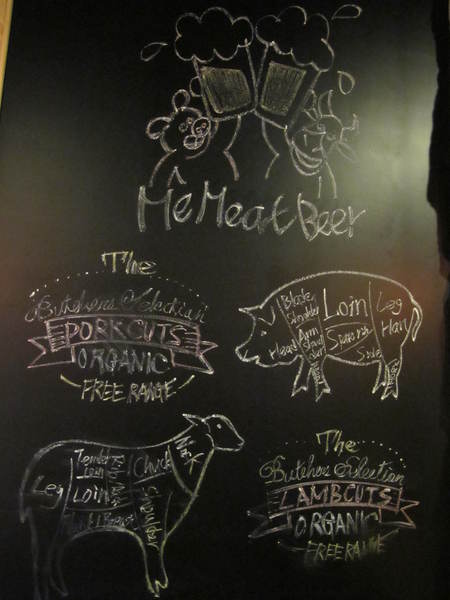 Me Meat Beer
The
Butchers Selection
PORKCUTS
ORGANIC
FREE RANGE
Blade
Shoulder
Loin
Leg
Ham
Head
Arm
Shoulder
Sparerib
Side
Neck
Tender
Loin
Chuck
Leg
Loin
Shoulder
Breast
The
Butchers Selection
LAMBCUTS
ORGANIC
FREE RANGE